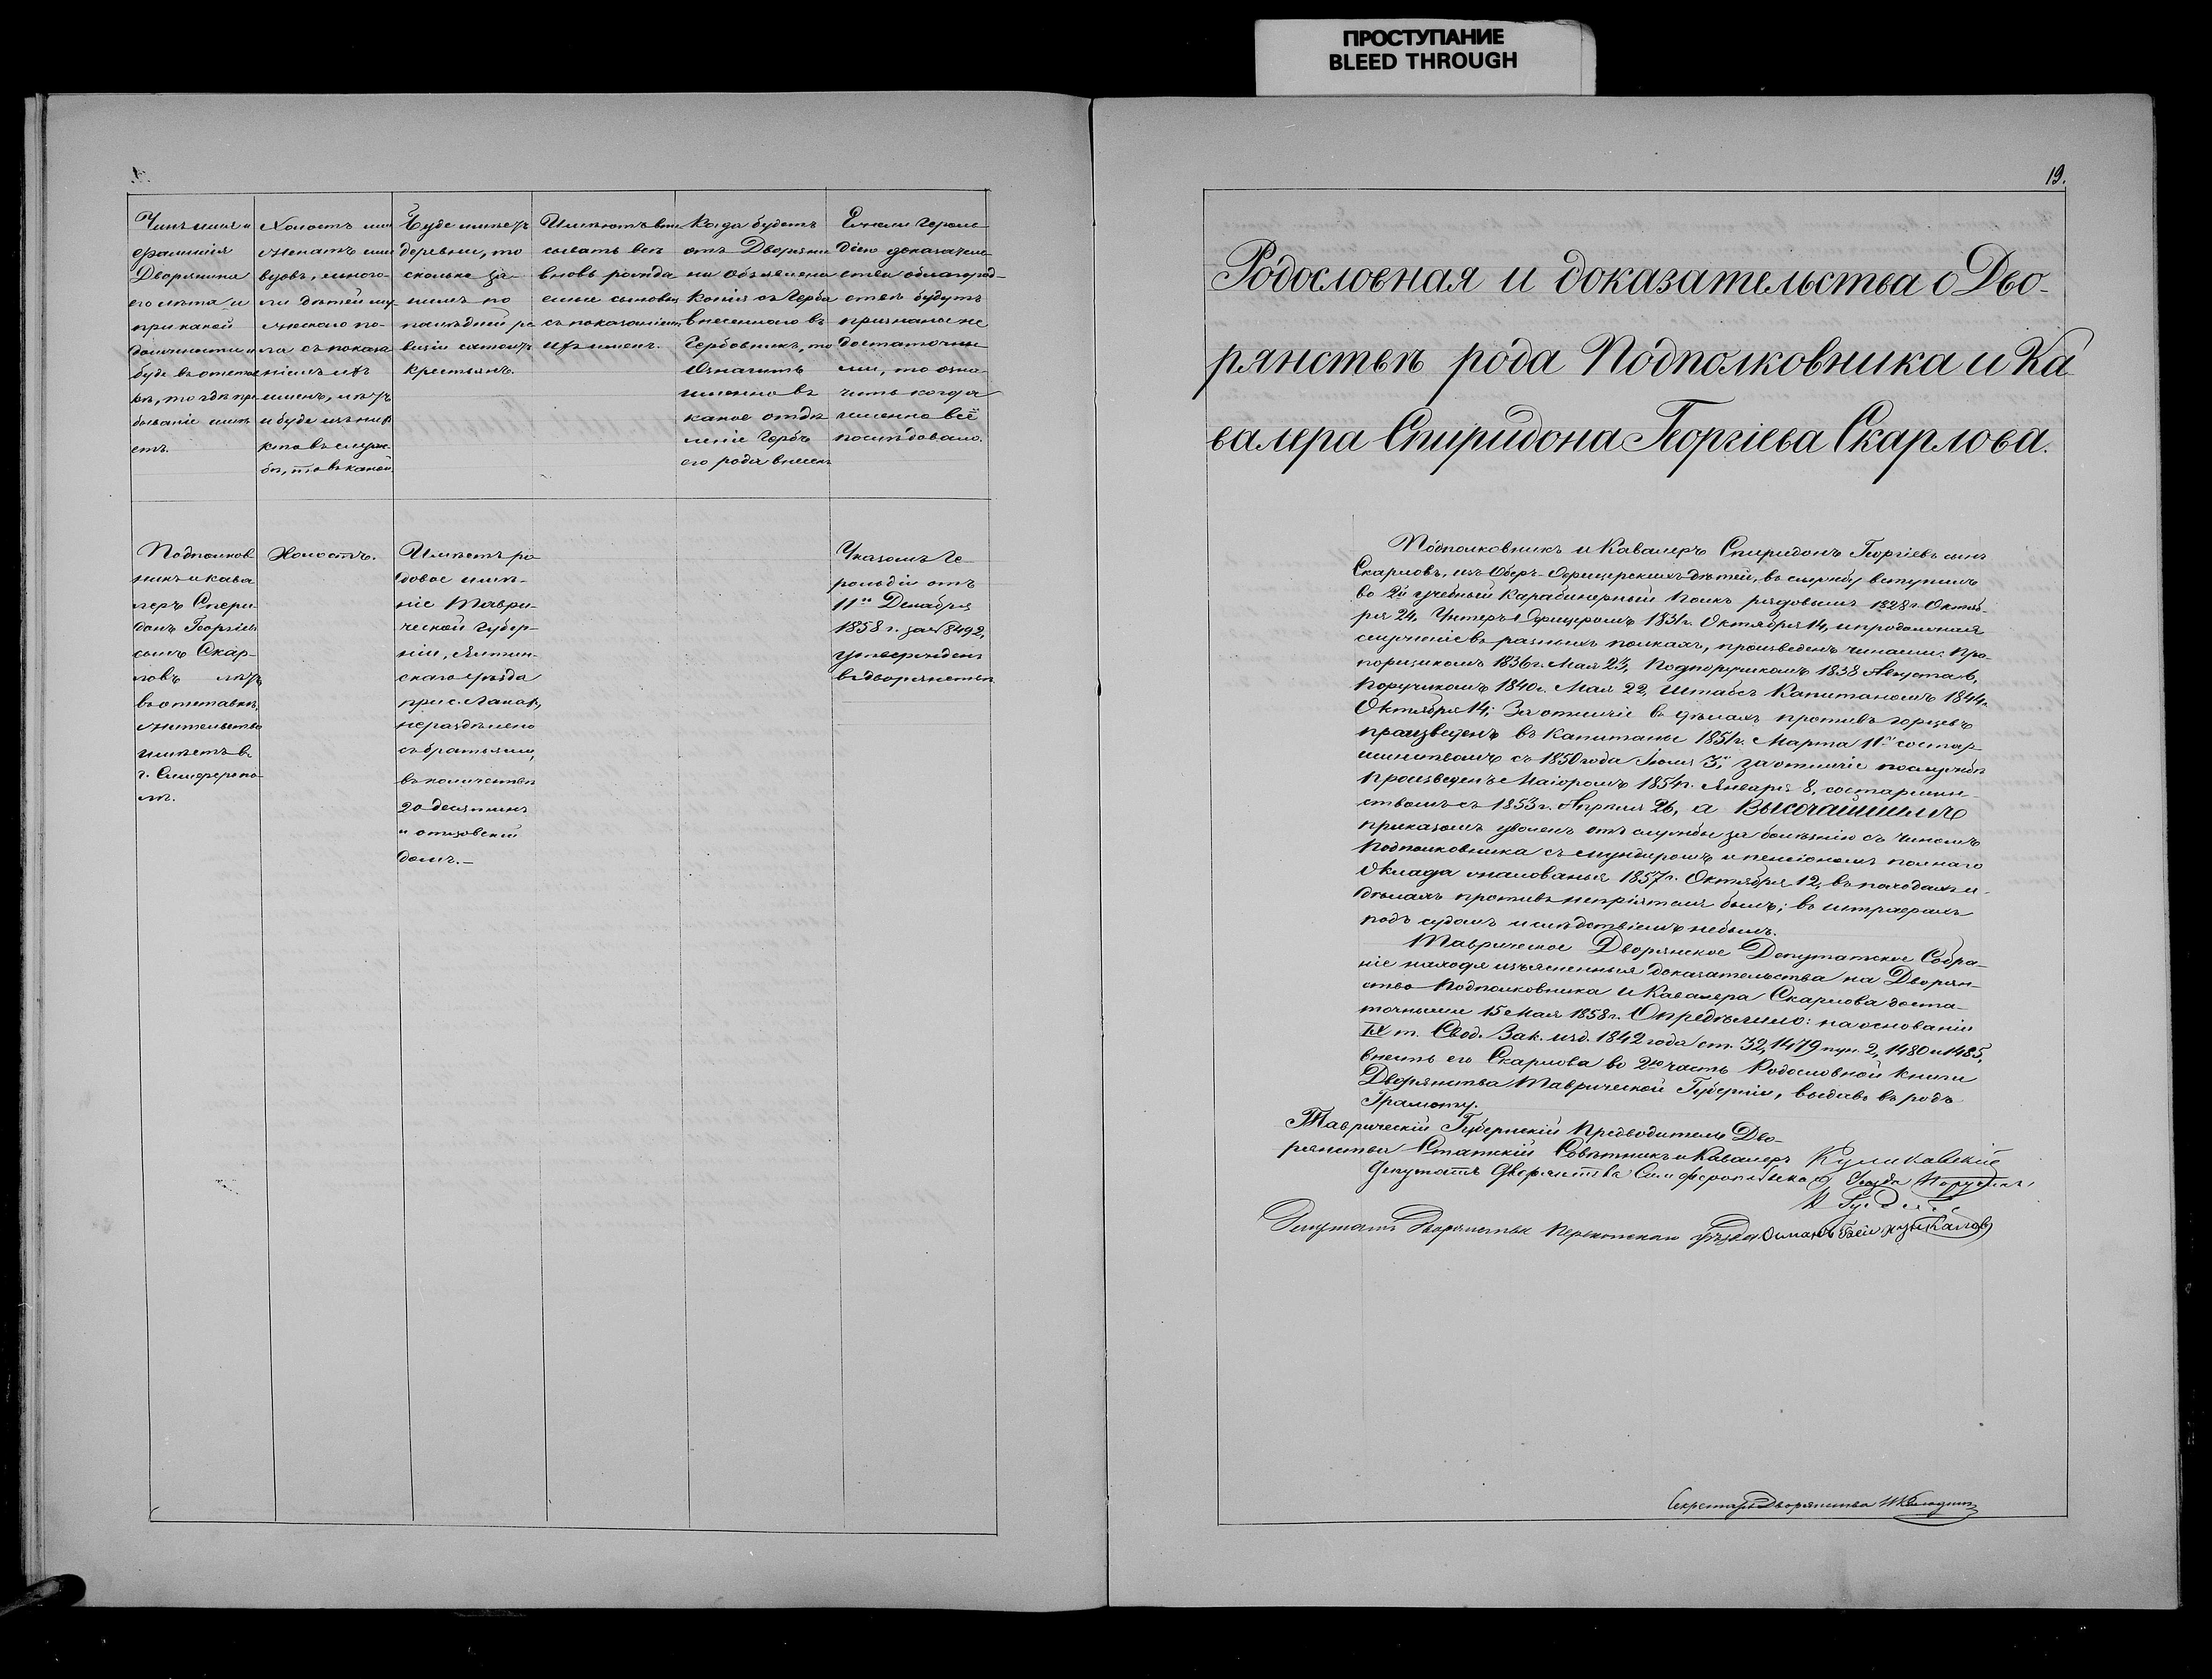 ПРОСТУПАНИЕ
BLEED THROUGH
Чинъ имя и
фамилія
Дворянина
его лѣта и
при какой
должности и
буде въ отстав
кѣ, то гдѣ пре
бываніе имѣ
етъ.
Холостъ или
женатъ или
вдовъ, много
ли дѣтей му
жескаго по-
ла съ показа
ніемъ ихъ
именъ, лѣтъ
и буде изъ нихъ
кто въ служ
бѣ, то въ какой
Буде имѣетъ
деревни, то
сколько за
нимъ по
послѣдней ре
визіи состоитъ
крестьянъ.
Имѣютъ впи
сывать всѣ
вновь рожда
емые сыновья
съ показаніемъ
ихъ именъ.
Когда будетъ
отъ Дворяни
на объявлена
копія съ Герба
внесеннаго въ
Гербовникъ, то
Означить
именно въ
какое отдѣ
леніе Гербъ
его рода внесенъ
Ежели Героль
діею доказатель
ства о благород-
ствѣ будутъ
признаны не
достаточны
ми, то озна-
чить когда
именно всё
послѣдовало.
Подполков
никъ и кава
леръ Спири
донъ Георгіевъ
сынъ Скар-
ловъ лѣтъ
въ отставкѣ,
жительство
имѣетъ въ
г. Симферопо-
лѣ.
Холостъ.
Имѣетъ ро
довое имѣ-
ніе Таври-
ческой Губер-
ніи, Ялтин-
скаго уѣзда
при с. Лакахъ,
нераздѣлено
съ братьями,
въ количествѣ
20 десятинъ
и отцовскій
домъ.—
Указомъ Ге-
рольдіи отъ
11го Декабря
1858 г. за № 8492,
утвержденъ
въ дворянствѣ
19.
Родословная и доказательства о Дво-
рянствѣ рода Подполковника и Ка
валера Спиридона Георгіева Скарлова.
Подполковникъ и Кавалеръ Спиридонъ Георгіевъ сынъ
Скарловъ, изъ Оберъ-Офицерскихъ дѣтей, въ службу вступилъ
во 2й учебный Карабинерный Полкъ рядовымъ 1828 г. Октяб-
ря 24, Унтеръ-Офицеромъ 1831 г. Октября 14, и продолжая
служеніе въ разныхъ полкахъ, произведенъ чинами: Пра-
порщикомъ 1836 г. Мая 23, Подпоручикомъ 1838 Августа 6,
Поручикомъ 1840 г. Мая 22, Штабсъ Капитаномъ 1844 г.
Октября 14; За отличіе въ дѣлахъ противъ горцевъ
произведенъ въ Капитаны 1851 г. Марта 11го со стар
шинствомъ съ 1850 года Іюля 3го за отличіе по службѣ
произведенъ Маіоромъ 1854 г. Января 8, со старшин-
ствомъ съ 1853 г. Апрѣля 26, а Высочайшимъ
приказомъ уволенъ отъ службы за болѣзнію съ чиномъ
Подполковника съ мундиромъ и пенсіономъ полнаго
Оклада жалованья 1857 г. Октября 12, въ походахъ и
дѣлахъ противъ непріятеля былъ; въ штрафахъ
подъ судомъ и слѣдствіемъ небылъ.
Таврическое Дворянское Депутатское Собра-
ніе находя изъясненныя доказательства на Дворян-
ство Подполковника и Кавалера Скарлова доста-
точными 15 Мая 1858 г. Опредѣлило: на основаніи
IX т. Свод. Зак. изд. 1842 года ст. 32, 1479 пун. 2, 1480 и 1485,
внесть его Скарлова во 2ю часть Родословной книги
Дворянства Таврической Губерніи, выдавъ въ родъ
Грамоту.
Таврическій Губернскій Предводитель Дво-
рянства Статскій Совѣтникъ и Кавалеръ Куликовскій
Депутатъ Дворянства Симферопольскаго Уѣзда Поручикъ
Депутатъ Дворянства Перекопскаго уѣзда Османъ Бей
Секретарь Дворянства